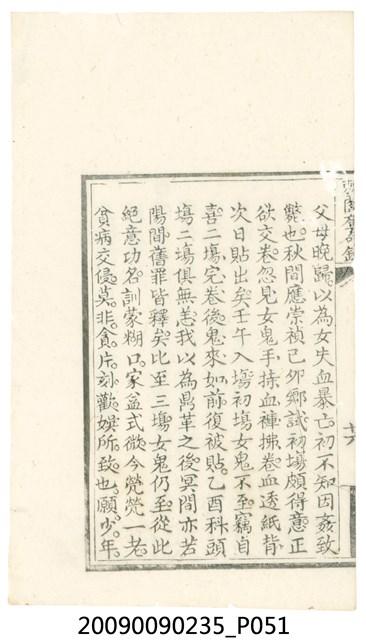 父母晚歸以為女失血暴亡初不知因姦致
斃也秋間應崇禎己夘鄉試初塲頗得意正
欲交卷忽見女鬼手持血褲拂卷血透紙背
次日貼出矣壬午入塲初塲女鬼不至竊自
喜二塲完卷後鬼來如前復被貼乙酉科頭
塲二塲俱無恙我以為鼎革之後冥間亦若
陽間舊罪皆釋矣比至三塲女鬼仍至從此
絕意功名訓蒙糊口家益式微今煢煢一老
貧病交侵莫非貪片刻歡娛所致也願少年
20090090235_P051